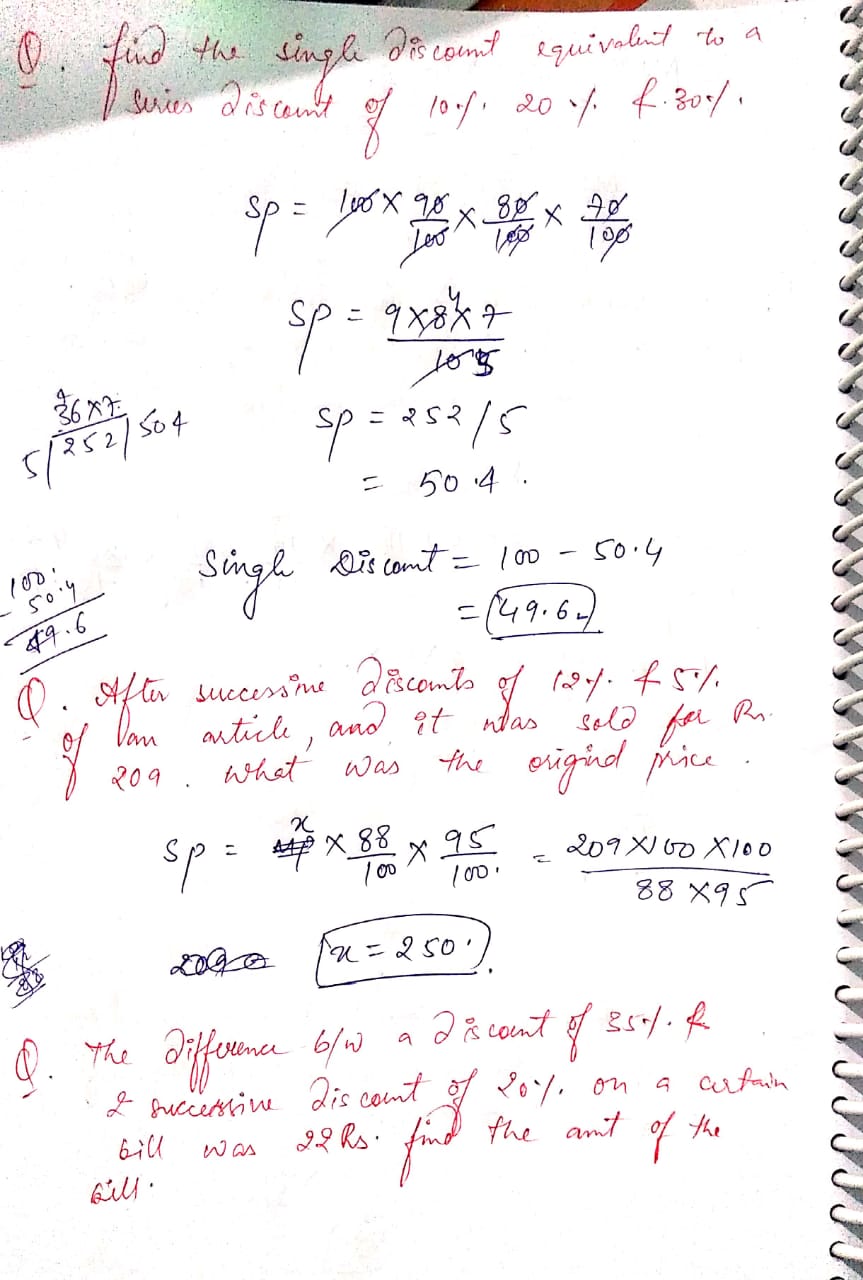 Q. find the single discount equivalent to a
series discount of 10%. 20%. & 30%.
SP = 100 × 90/100 × 80/100 × 70/100
SP = 9×8×7/10 4 5
36×7
5)252(504
SP = 252/5
= 50.4.
100.
- 50.4
49.6
Single Discount = 100 - 50.4
= 49.6
Q. After successive discounts of 12%. & 5%.
of an article, and it was sold for Rs.
209. What was the original price.
SP = x × 88/100 × 95/100. = 209×100×100/88×95
x = 250.
Q. The difference b/w a discount of 35%. &
2 successive discount of 20%. on a certain
bill was 22 Rs. find the amt of the
bill.